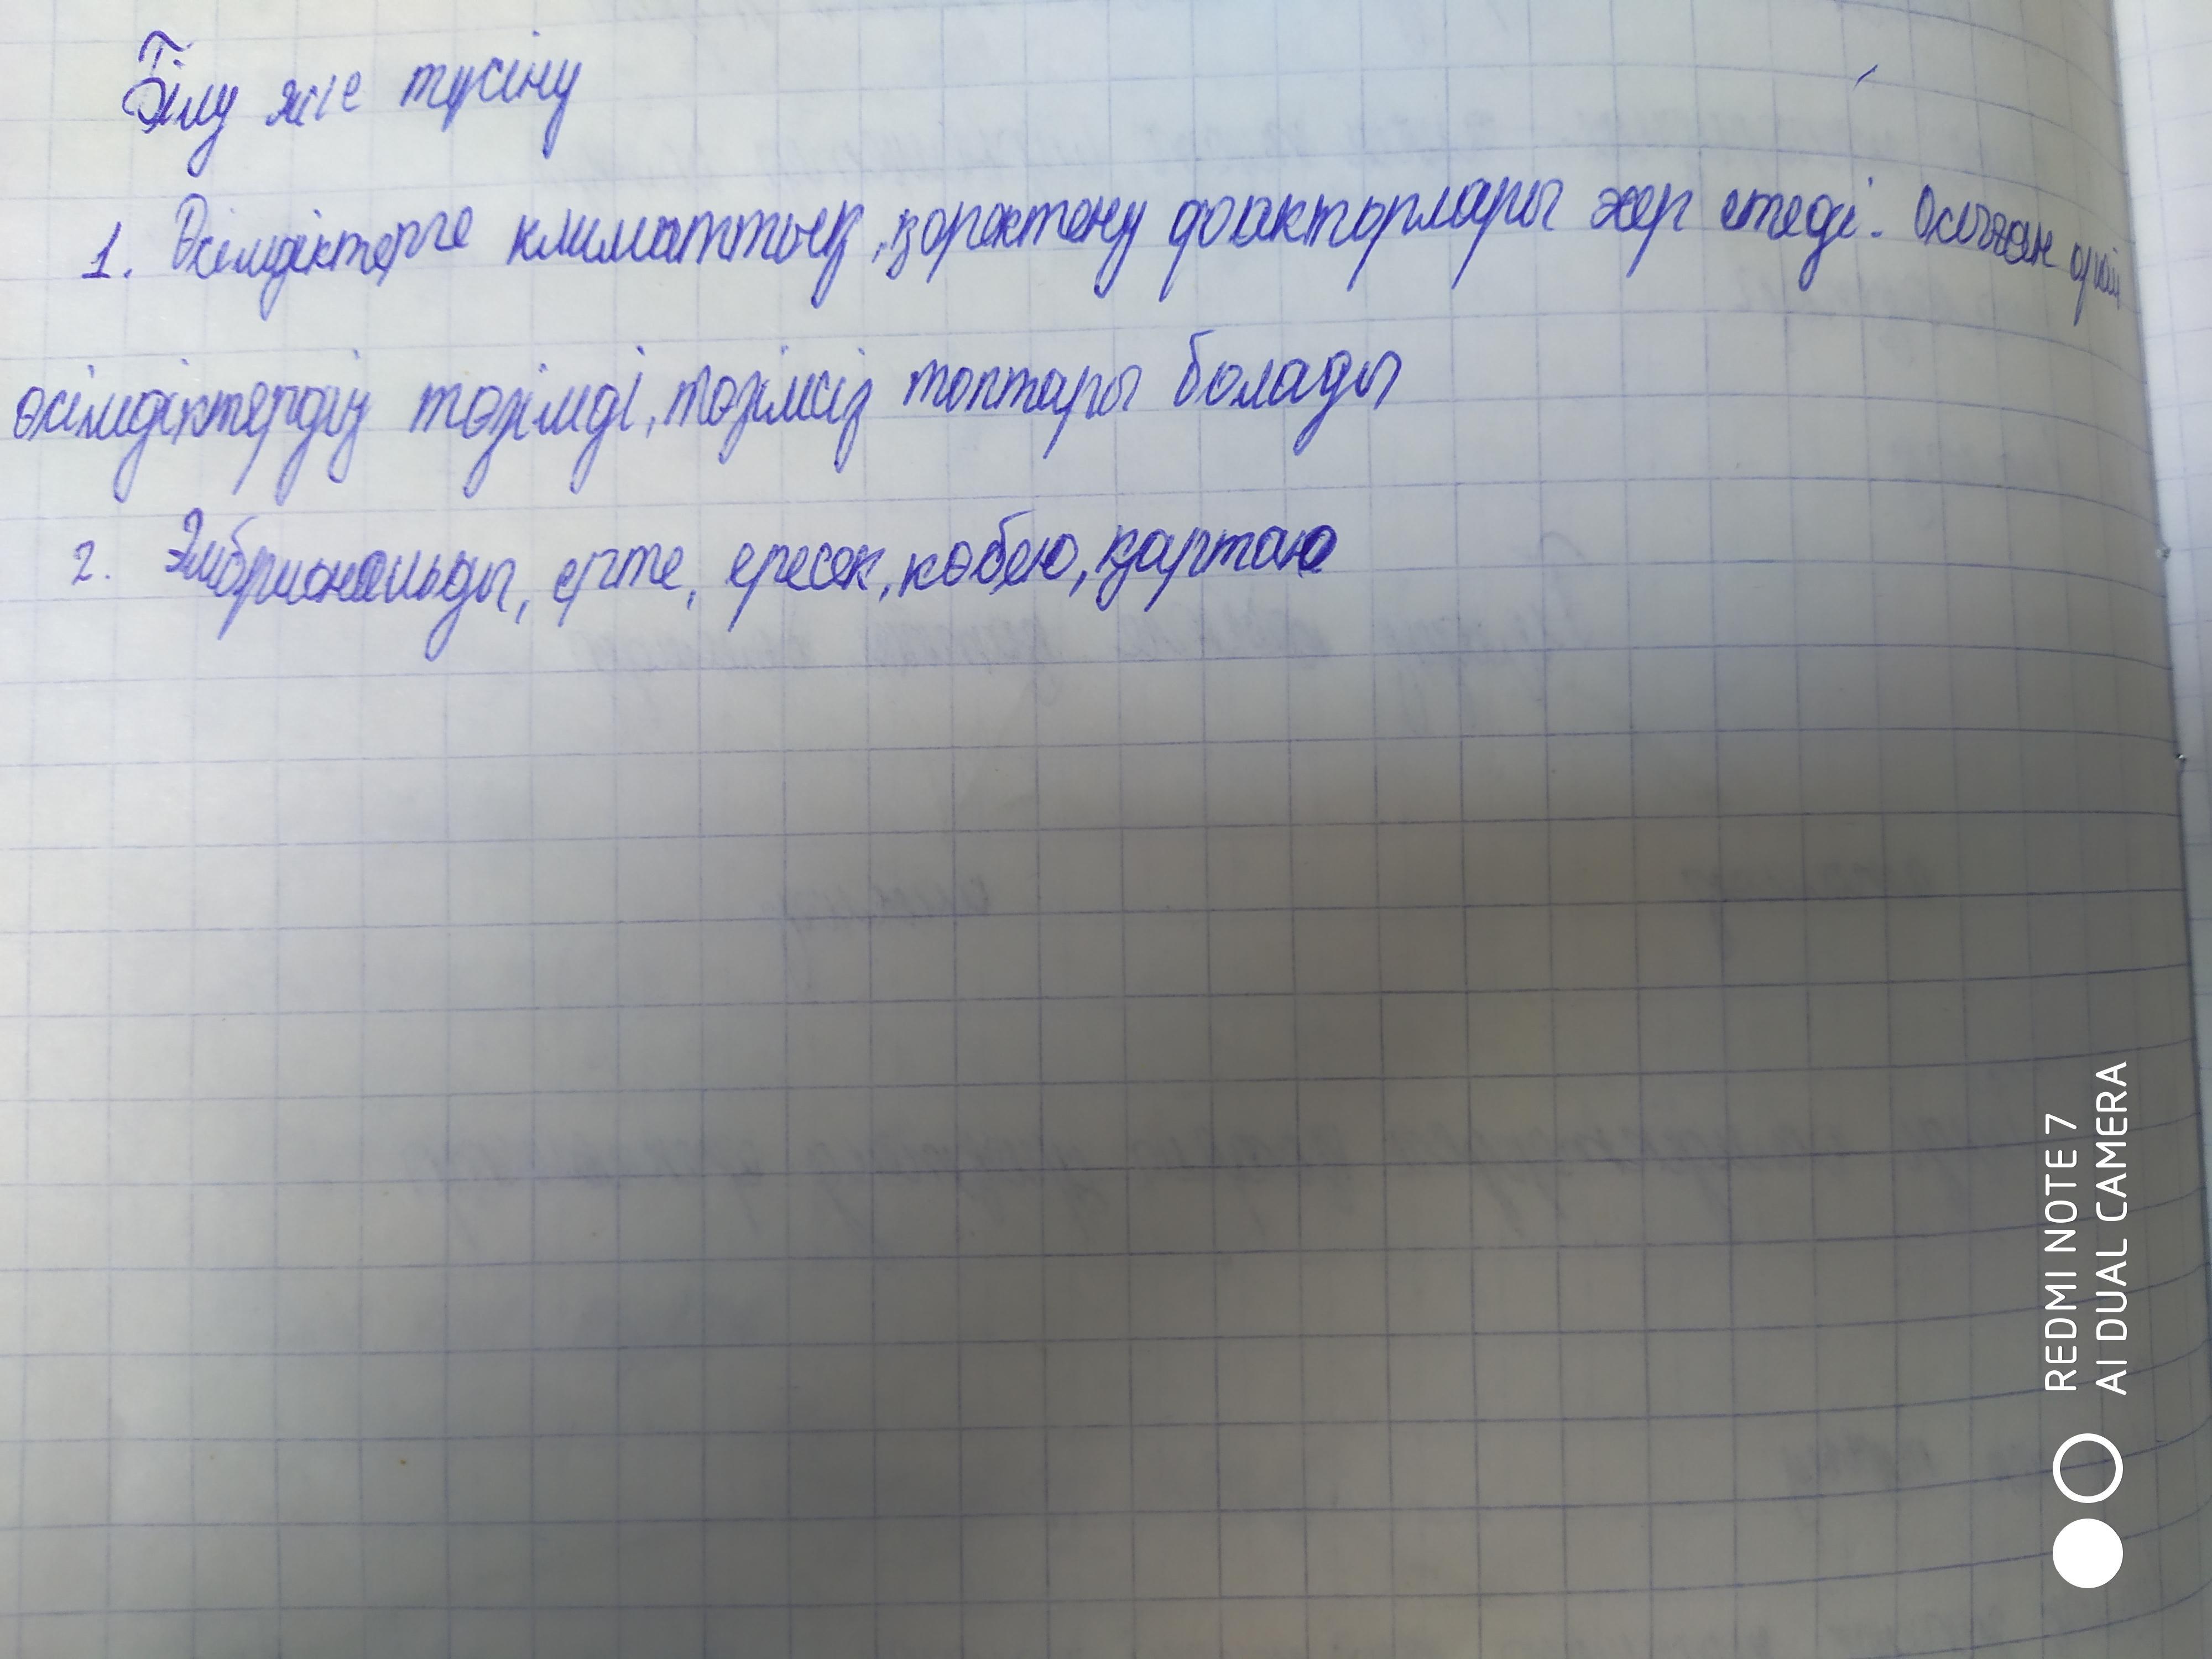 Білу және түсіну
1. Өсімдіктерге климаттық, қоректену факторлары әсер етеді. Осыған орай
өсімдіктердің төзімді, төзімсіз топтары болады
2. Эмбрионалды, ерте, ересек, көбею, қартаю
REDMI NOTE 7
AI DUAL CAMERA